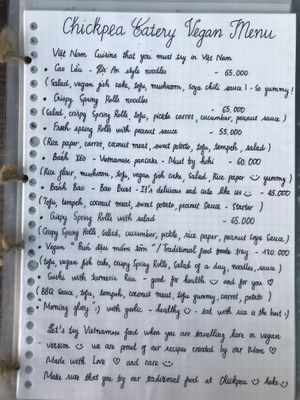 Chickpea Eatery Vegan Menu
Việt Nam Cuisine that you must try in Việt Nam
• Cao Lầu - Hội An style noodles - 65.000
(Salad, vegan fish cake, tofu, mushroom, soya chili sauce) - So yummy!
• Crispy Spring Rolls noodles - 65.000
(Salad, crispy Spring Rolls, tofu, pickle carrot, cucumber, peanut sauce)
• Fresh spring Rolls with peanut sauce - 55.000
(Rice paper, carrot, coconut meat, sweet potato, tofu, tempeh, salad)
• Bánh Xèo - Vietnamese pancake - Must try hihi - 60.000
(Rice flour, mushroom, tofu, vegan fish cake, Salad, Rice paper yummy)
• Bánh Bao - Bao Buns - It's delicious and cute like us - 45.000
(Tofu, tempeh, coconut meat, sweet potato, peanut Sauce - Starter)
• Crispy Spring Rolls with salad - 65.000
(Crispy Spring Rolls, Salad, cucumber, pickle, rice paper, peanut Soya Sauce)
• Vegan "Bún đậu mắm tôm" / Traditional food tray - 120.000
(tofu, vegan fish cake, crispy Spring Rolls, Salad of a day, noodles, sauce)
• Sushi with Turmeric Rice - good for health and for you ♡
(BBQ Sauce, tofu, tempeh, coconut meat, tofu yummy, carrot, potato)
• Morning glory :) with garlic - healthy - eat with rice is the best :)
Let's try Vietnamese food when you are travelling here or vegan
version we are proud of our recipes created by our Mom ♡
Made with Love ♡ and care
Make sure that you try our traditional food at Chickpea hehe